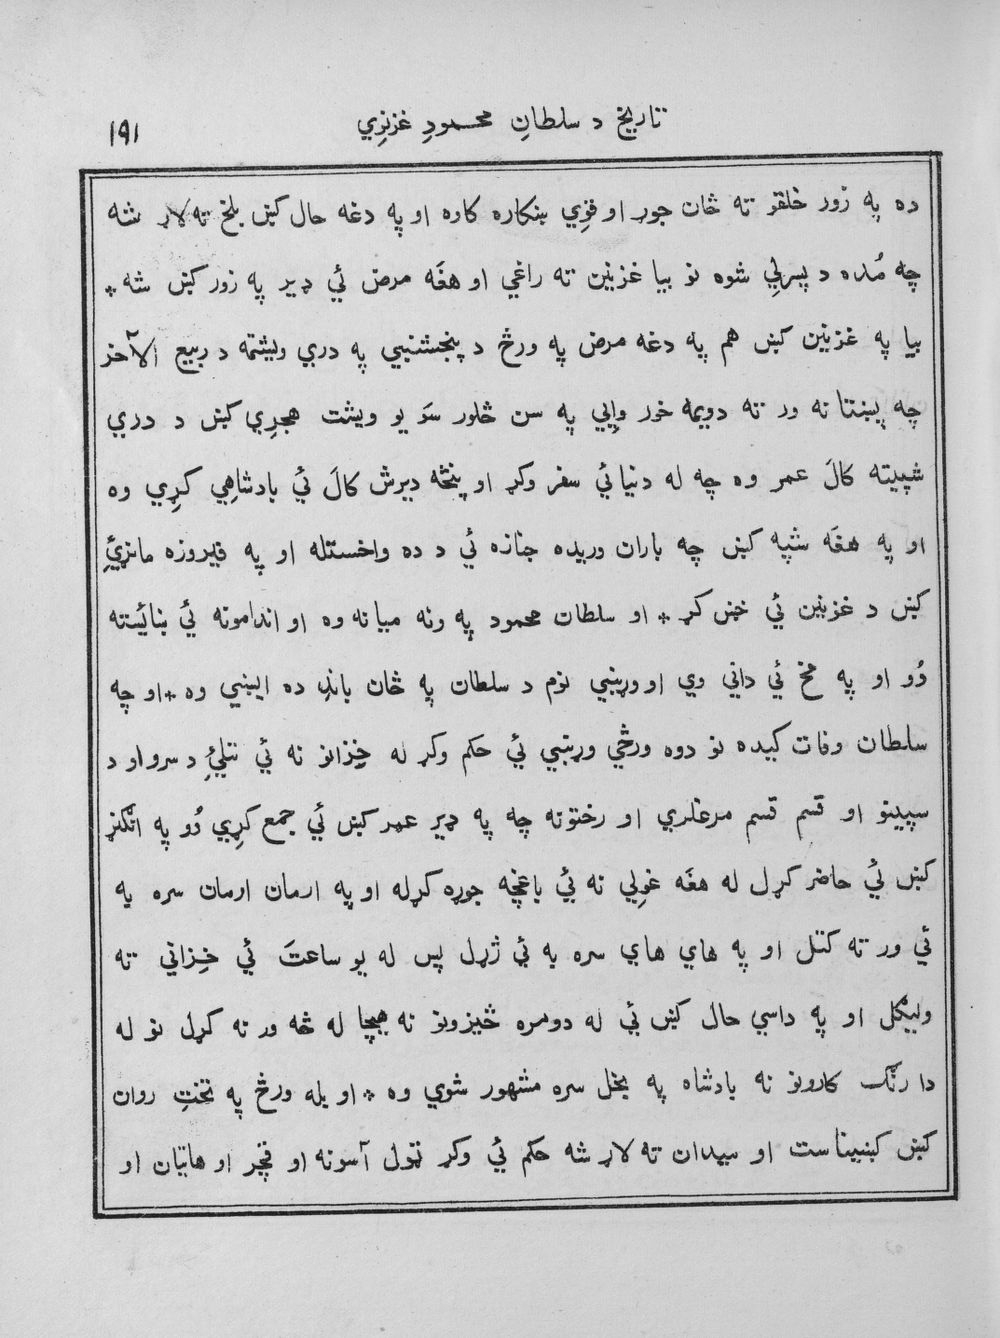 تاریخ د سلطانِ محمودِ غزنوِي ۱۹۱
ده په زور خلقو ته ځان جوړ او قوِي ښکاره کاره او په دغه حال کښ بلخ ته لاړ شه
چه مُده د پسرلِي شوه نو بیا غزنین ته راغي او هغَه مرض ئي ډیر په زور کښ شه *
بیا په غزنین کښ هم په دغه مرض په ورځ د پنجشنبي په دري ویشتمه د ربیع الآخر
چه پښتانه ور ته دویمه خور وايي په سن څلور سَو یو ویشت هجرِي کښ د دري
شپیته کالَ عمر وه چه له دنیا ئي سفر وکړ او پنځه دیرش کالَ ئي بادشاهِي کړِي وه
او په هغَه شپه کښ چه باران وریده جنازه ئي د ده واخستله او په فیروزه مانړئِ
کښ د غزنین ئي خښ کړ * او سلطان محمود په ونه میانه وه او اندامونه ئي ښائسته
دُو او په مخ ئي داني وي او وړنبي نوم د سلطان په ځان باندِ ده ایښي وه * او چه
سلطان وفات کیده نو دوه ورځي وړنبي ئي حکم وکړ له خِزانو نه ئي تتلئِ د سرو او د
سپینو او قسم قسم مرغلري او رختونه چه په ډیر عمر کښ ئي جمع کړِي دُو په انګنړ
کښ ئي حاضر کړل له هغَه غولِي نه ئي باغچه جوړه کړله او په ارمان ارمان سره به
ئي ور ته کتل او په هاي هاي سره به ئي ژړل پس له یو ساعتَ ئي خِزاني ته
ولیګل او په داسي حال کښ ئي له دومره څیزونو نه هیچا له څه ور نه کړل نو له
دا رنګ کارونو نه بادشاه په بخل سره مشهور شوي وه * او بله ورځ په تختِ روان
کښ کښیناست او میدان ته لاړ شه حکم ئي وکړ ټول آسونه او قچر او هاتیان او